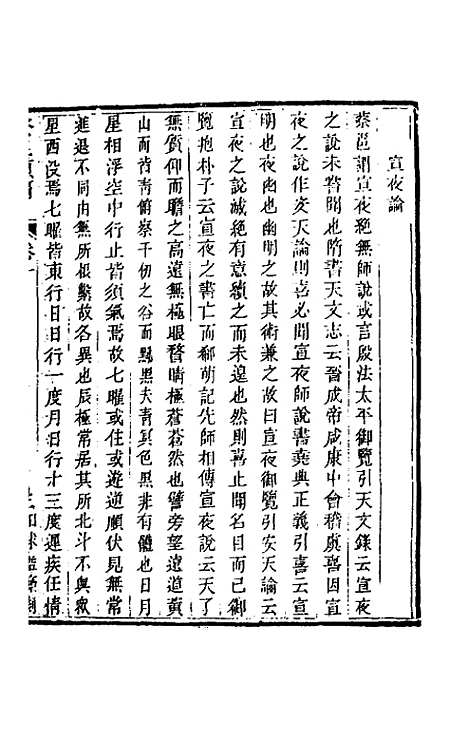 宣夜論
蔡邕謂宣夜絕無師說或言殷法太平御覽引天文錄云宣夜
之說未嘗聞也隋書天文志云晉成帝咸康中會稽虞喜因宣
夜之說作安天論則喜必聞宣夜師說書堯典正義引喜云宣
明也夜幽也幽明之故其術兼之故曰宣夜御覽引安天論云
宣夜之說誠絕有意續之而未遑也然則喜止聞名目而已御
覽抱朴子云宣夜之書亡而郗萌記先師相傳宣夜說云天了
無質仰而瞻之高遠無極眼瞀睛極蒼蒼然也譬旁望遠道黃
山而皆青俯察千仞之谷而黝黑夫青冥色黑非有體也日月
星相浮空中行止皆須氣焉故七曜或住或遊逆順伏見無常
進退不同由無所根繫故各異也辰極常居其所北斗不與眾
星西沒焉七曜皆東行日日行一度月日行十三度遲疾任情